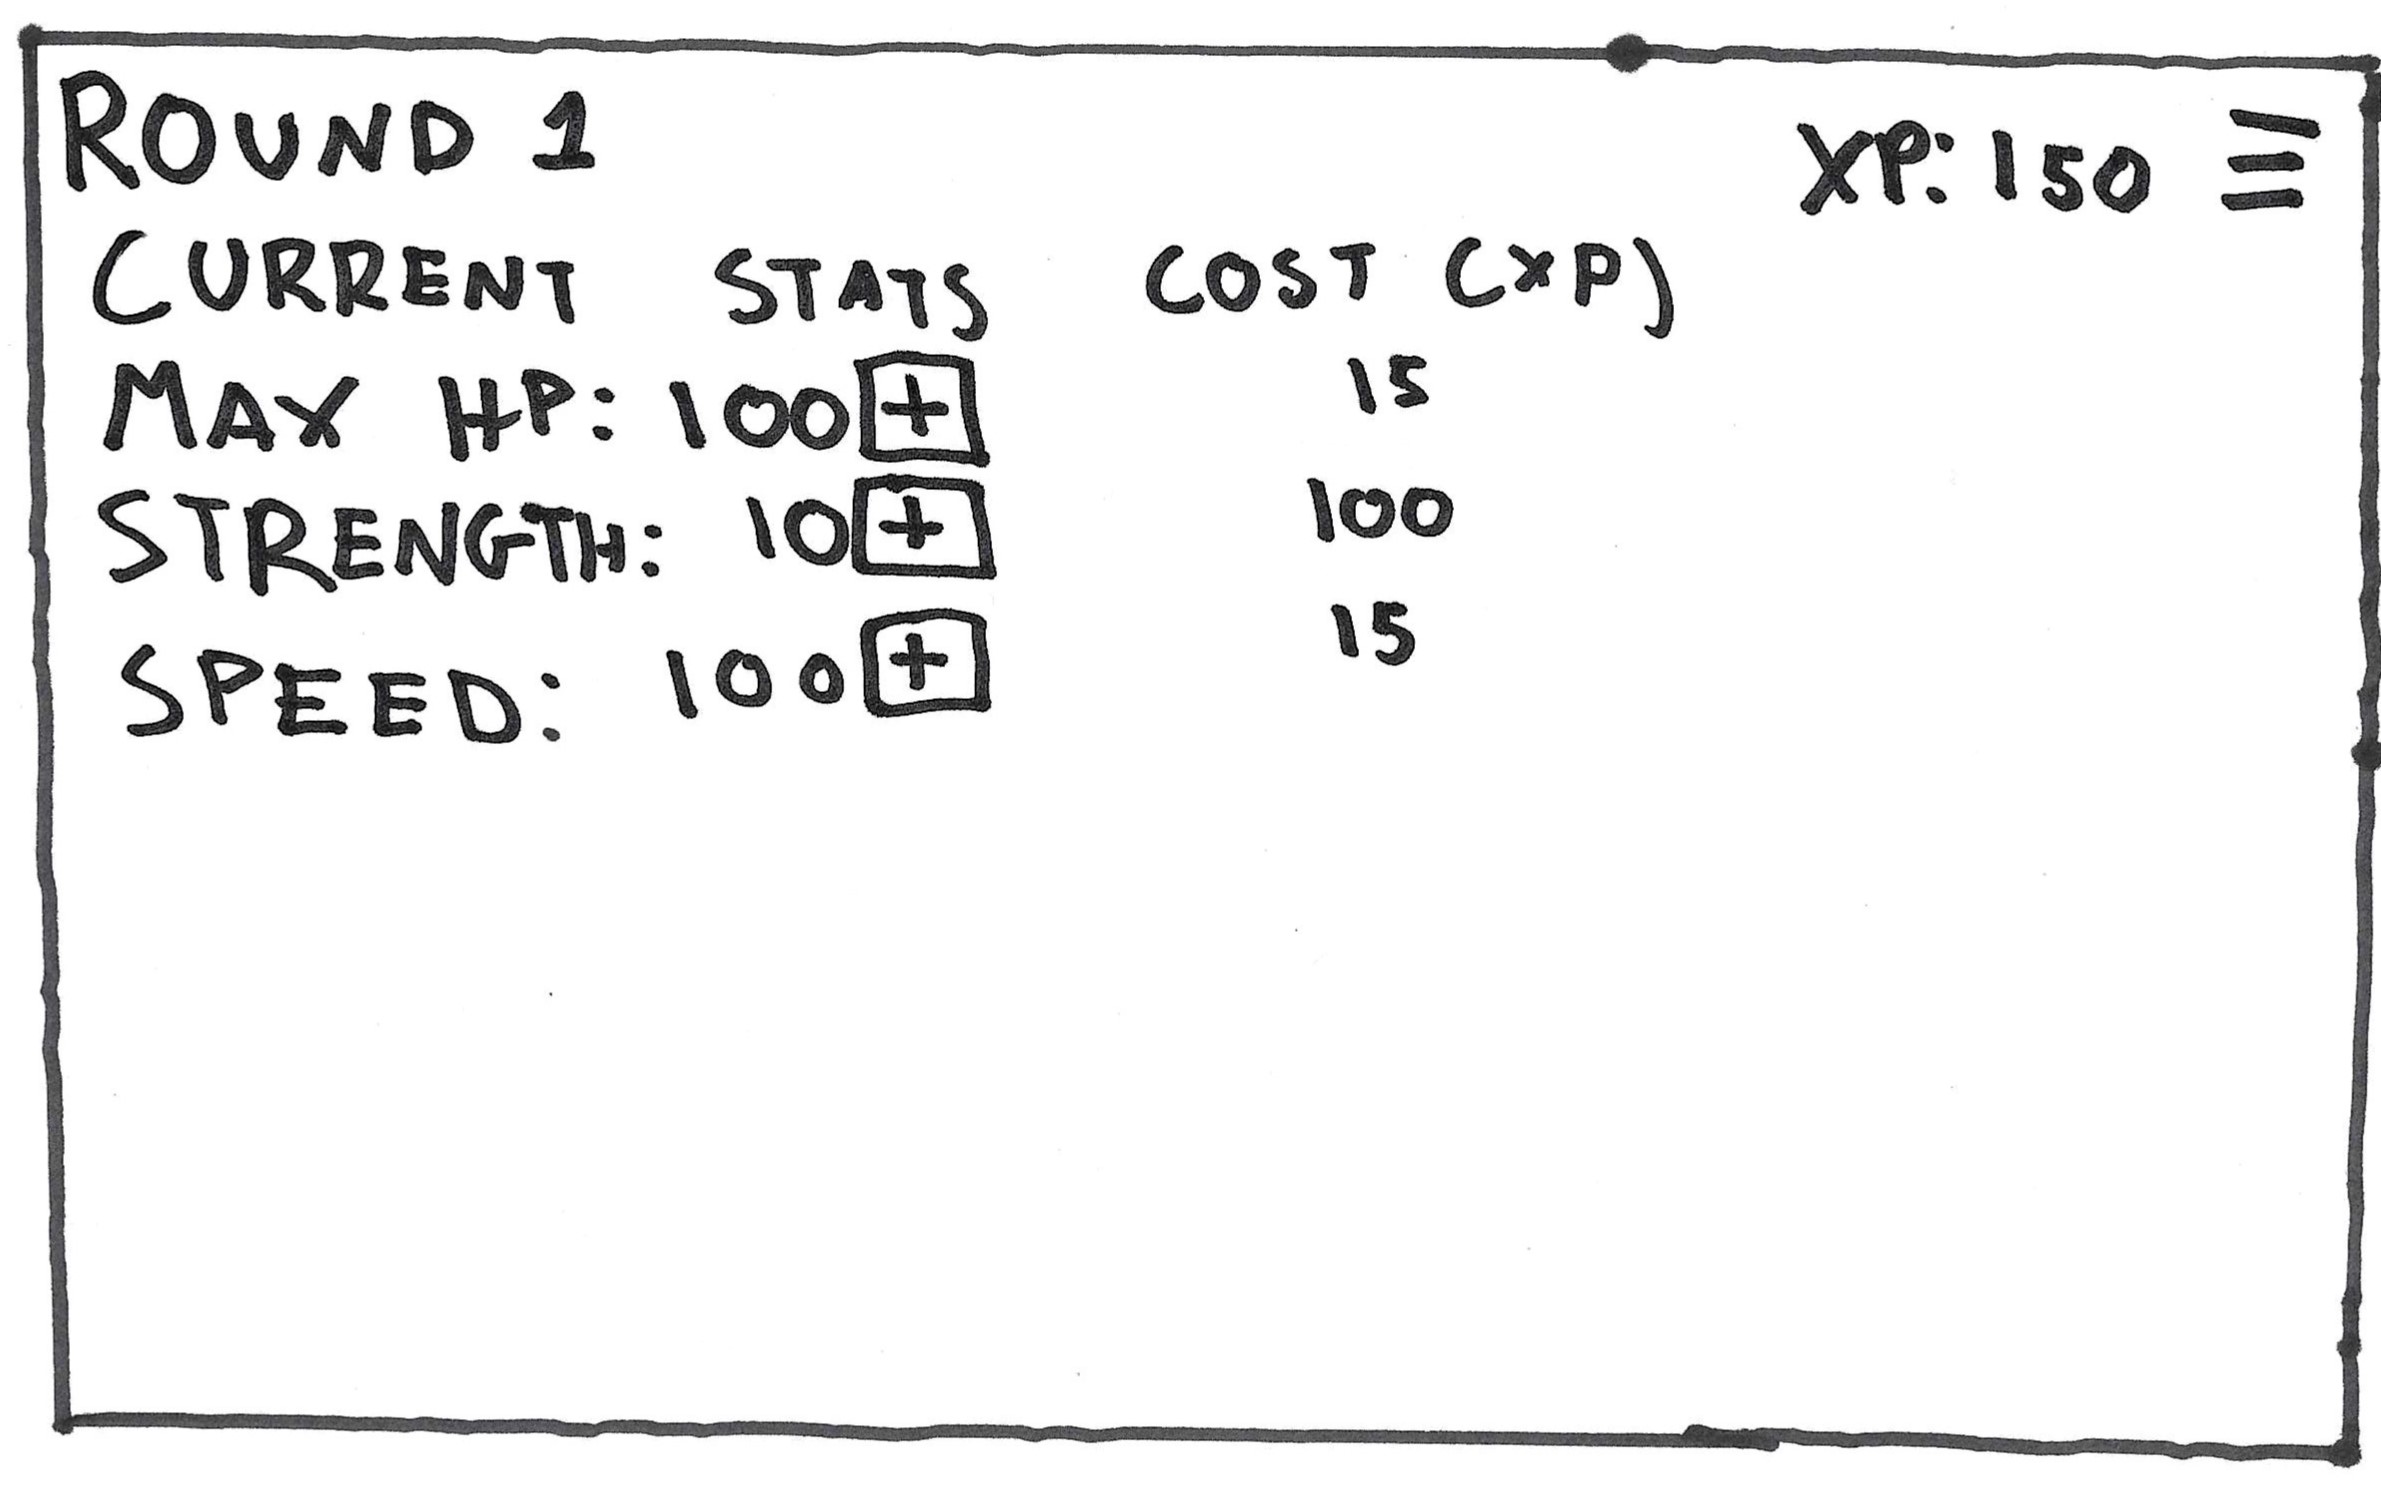 ROUND 1
XP: 150
CURRENT STATS COST (XP)
MAX HP: 100 + 15
STRENGTH: 10 + 100
SPEED: 100 + 15